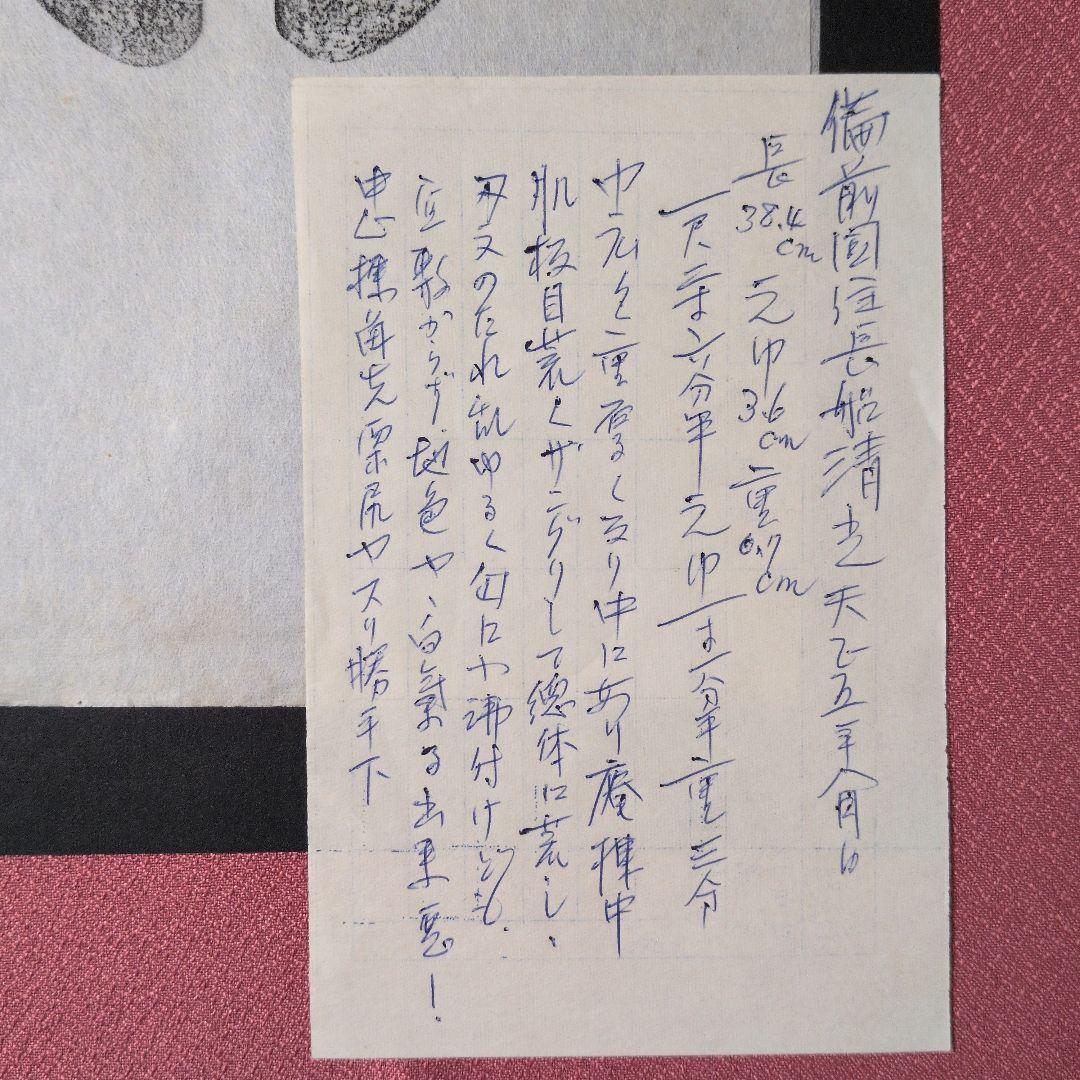 備前国住長船清光天正五年八月日
長38.4cm 元巾3.6cm 重0.7cm
一尺二寸六分半 元巾一寸一分半 重二分
巾広く重厚くなり中にあり庵棟中
肌板目荒くザングリして総体に荒し、
刃文のたれ乱ゆるく匂口や沸付けども、
敷からず、地色や、白氣る出来悪し。
忠棟角先栗尻ヤスリ勝手下